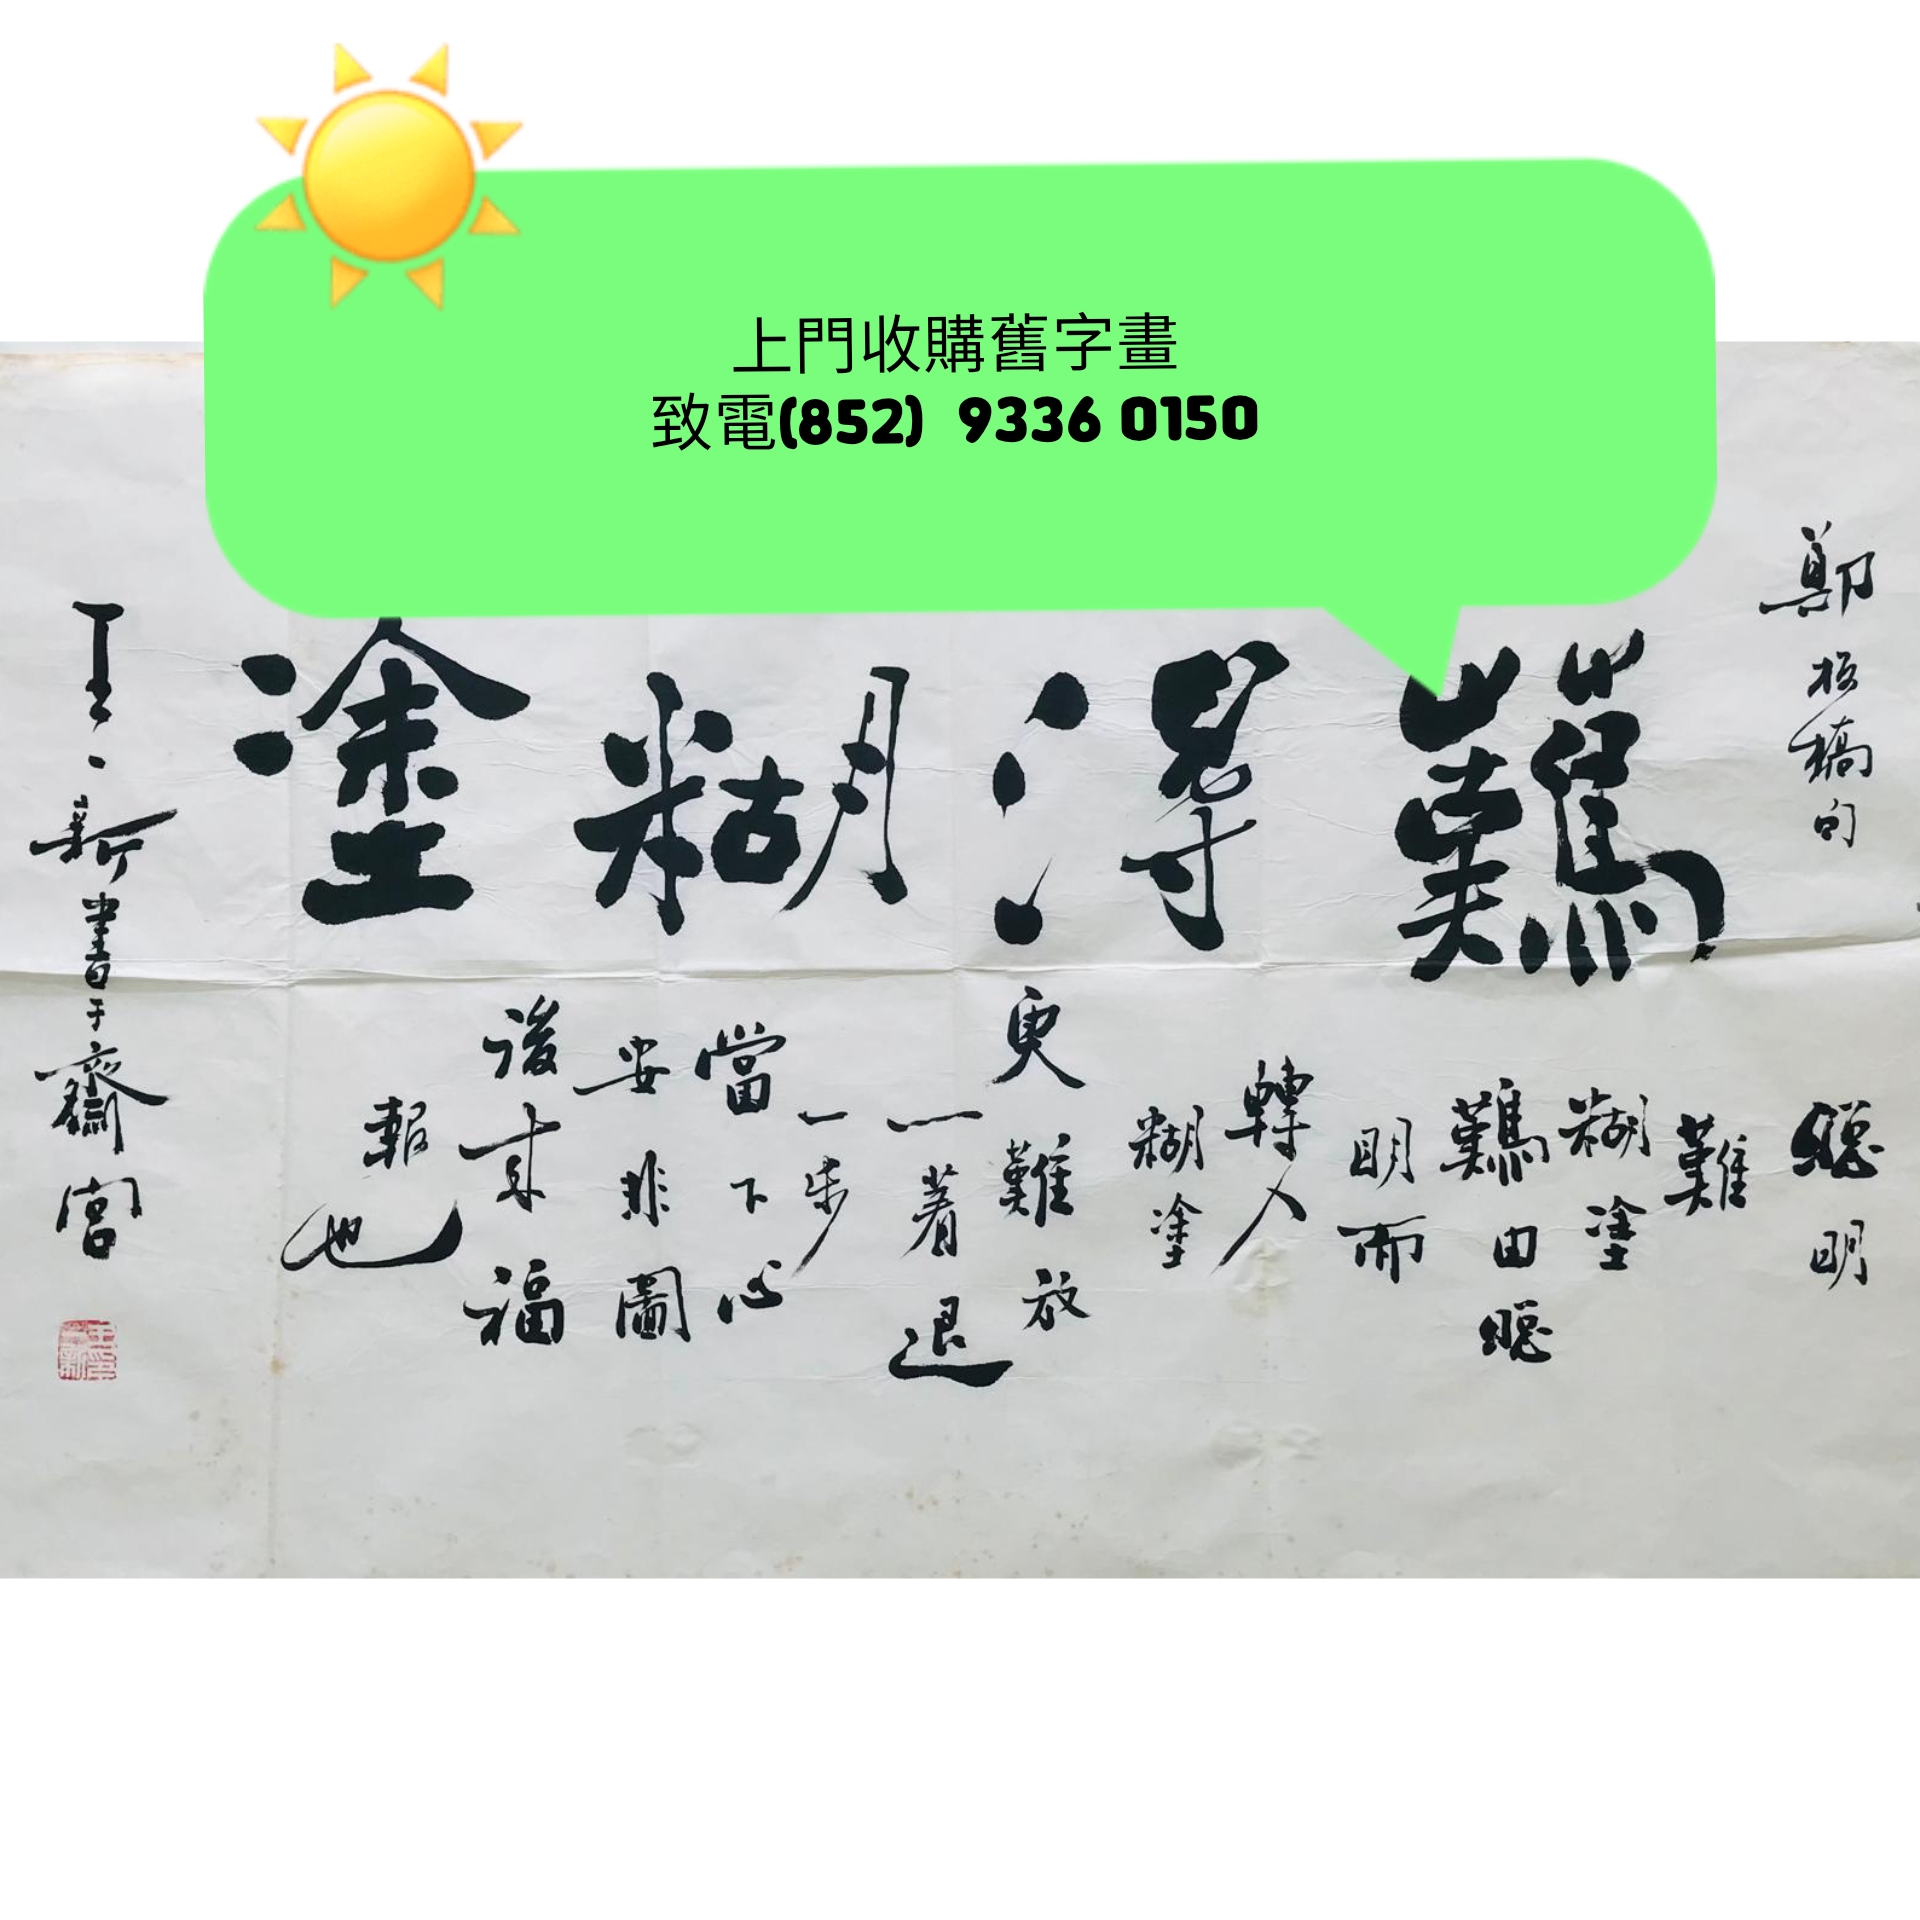 上門收購舊字畫
致電(852) 9336 0150
鄭板橋句
難得糊塗
聰明
難
糊塗
難由聰
明而
轉入
糊塗
更難放
一著退
一步
當下心
安非圖
後來福
報也
王一新書于齋宮